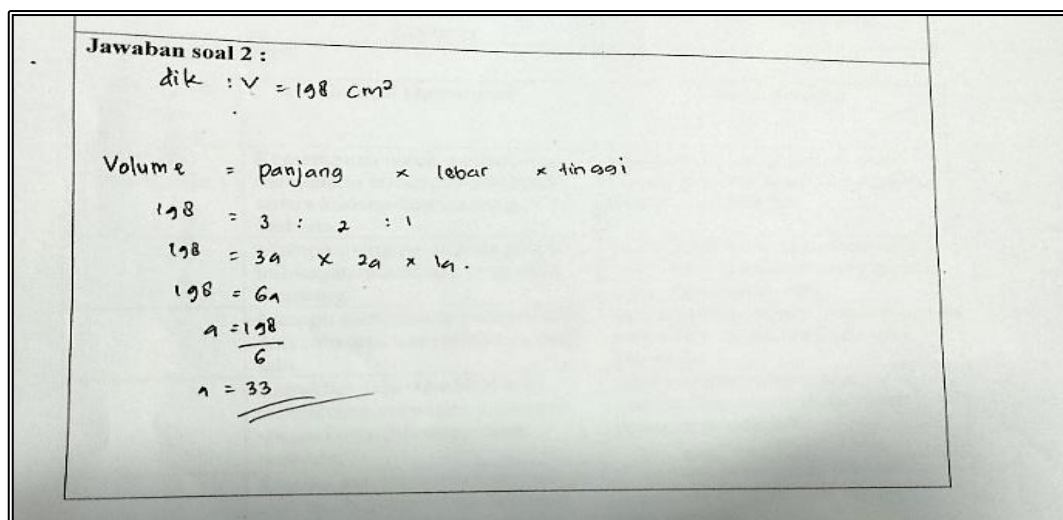 Jawaban soal 2 :
dik : V = 198 cm²
Volume = panjang × lebar × tinggi
198 = 3 : 2 : 1
198 = 3a × 2a × 1a.
198 = 6a
a = 198
6
a = 33